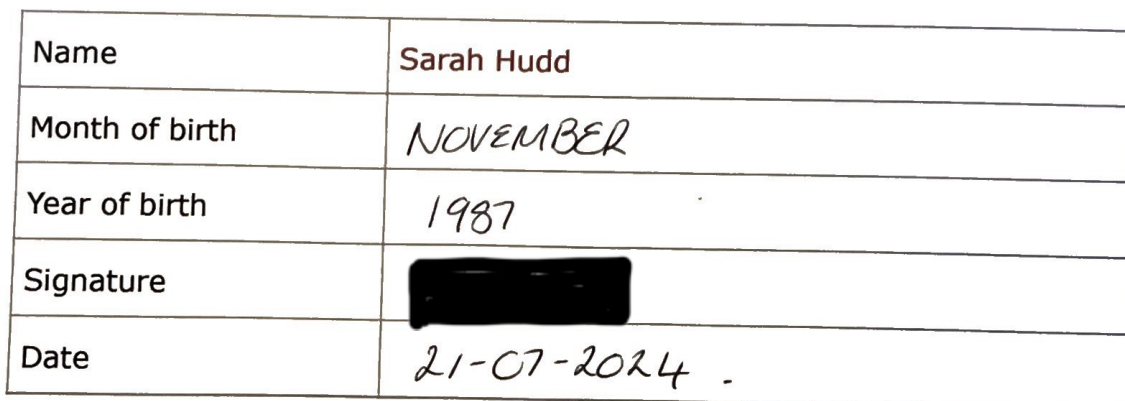 Name Sarah Hudd
Month of birth NOVEMBER
Year of birth 1987
Signature
Date 21-07-2024 .